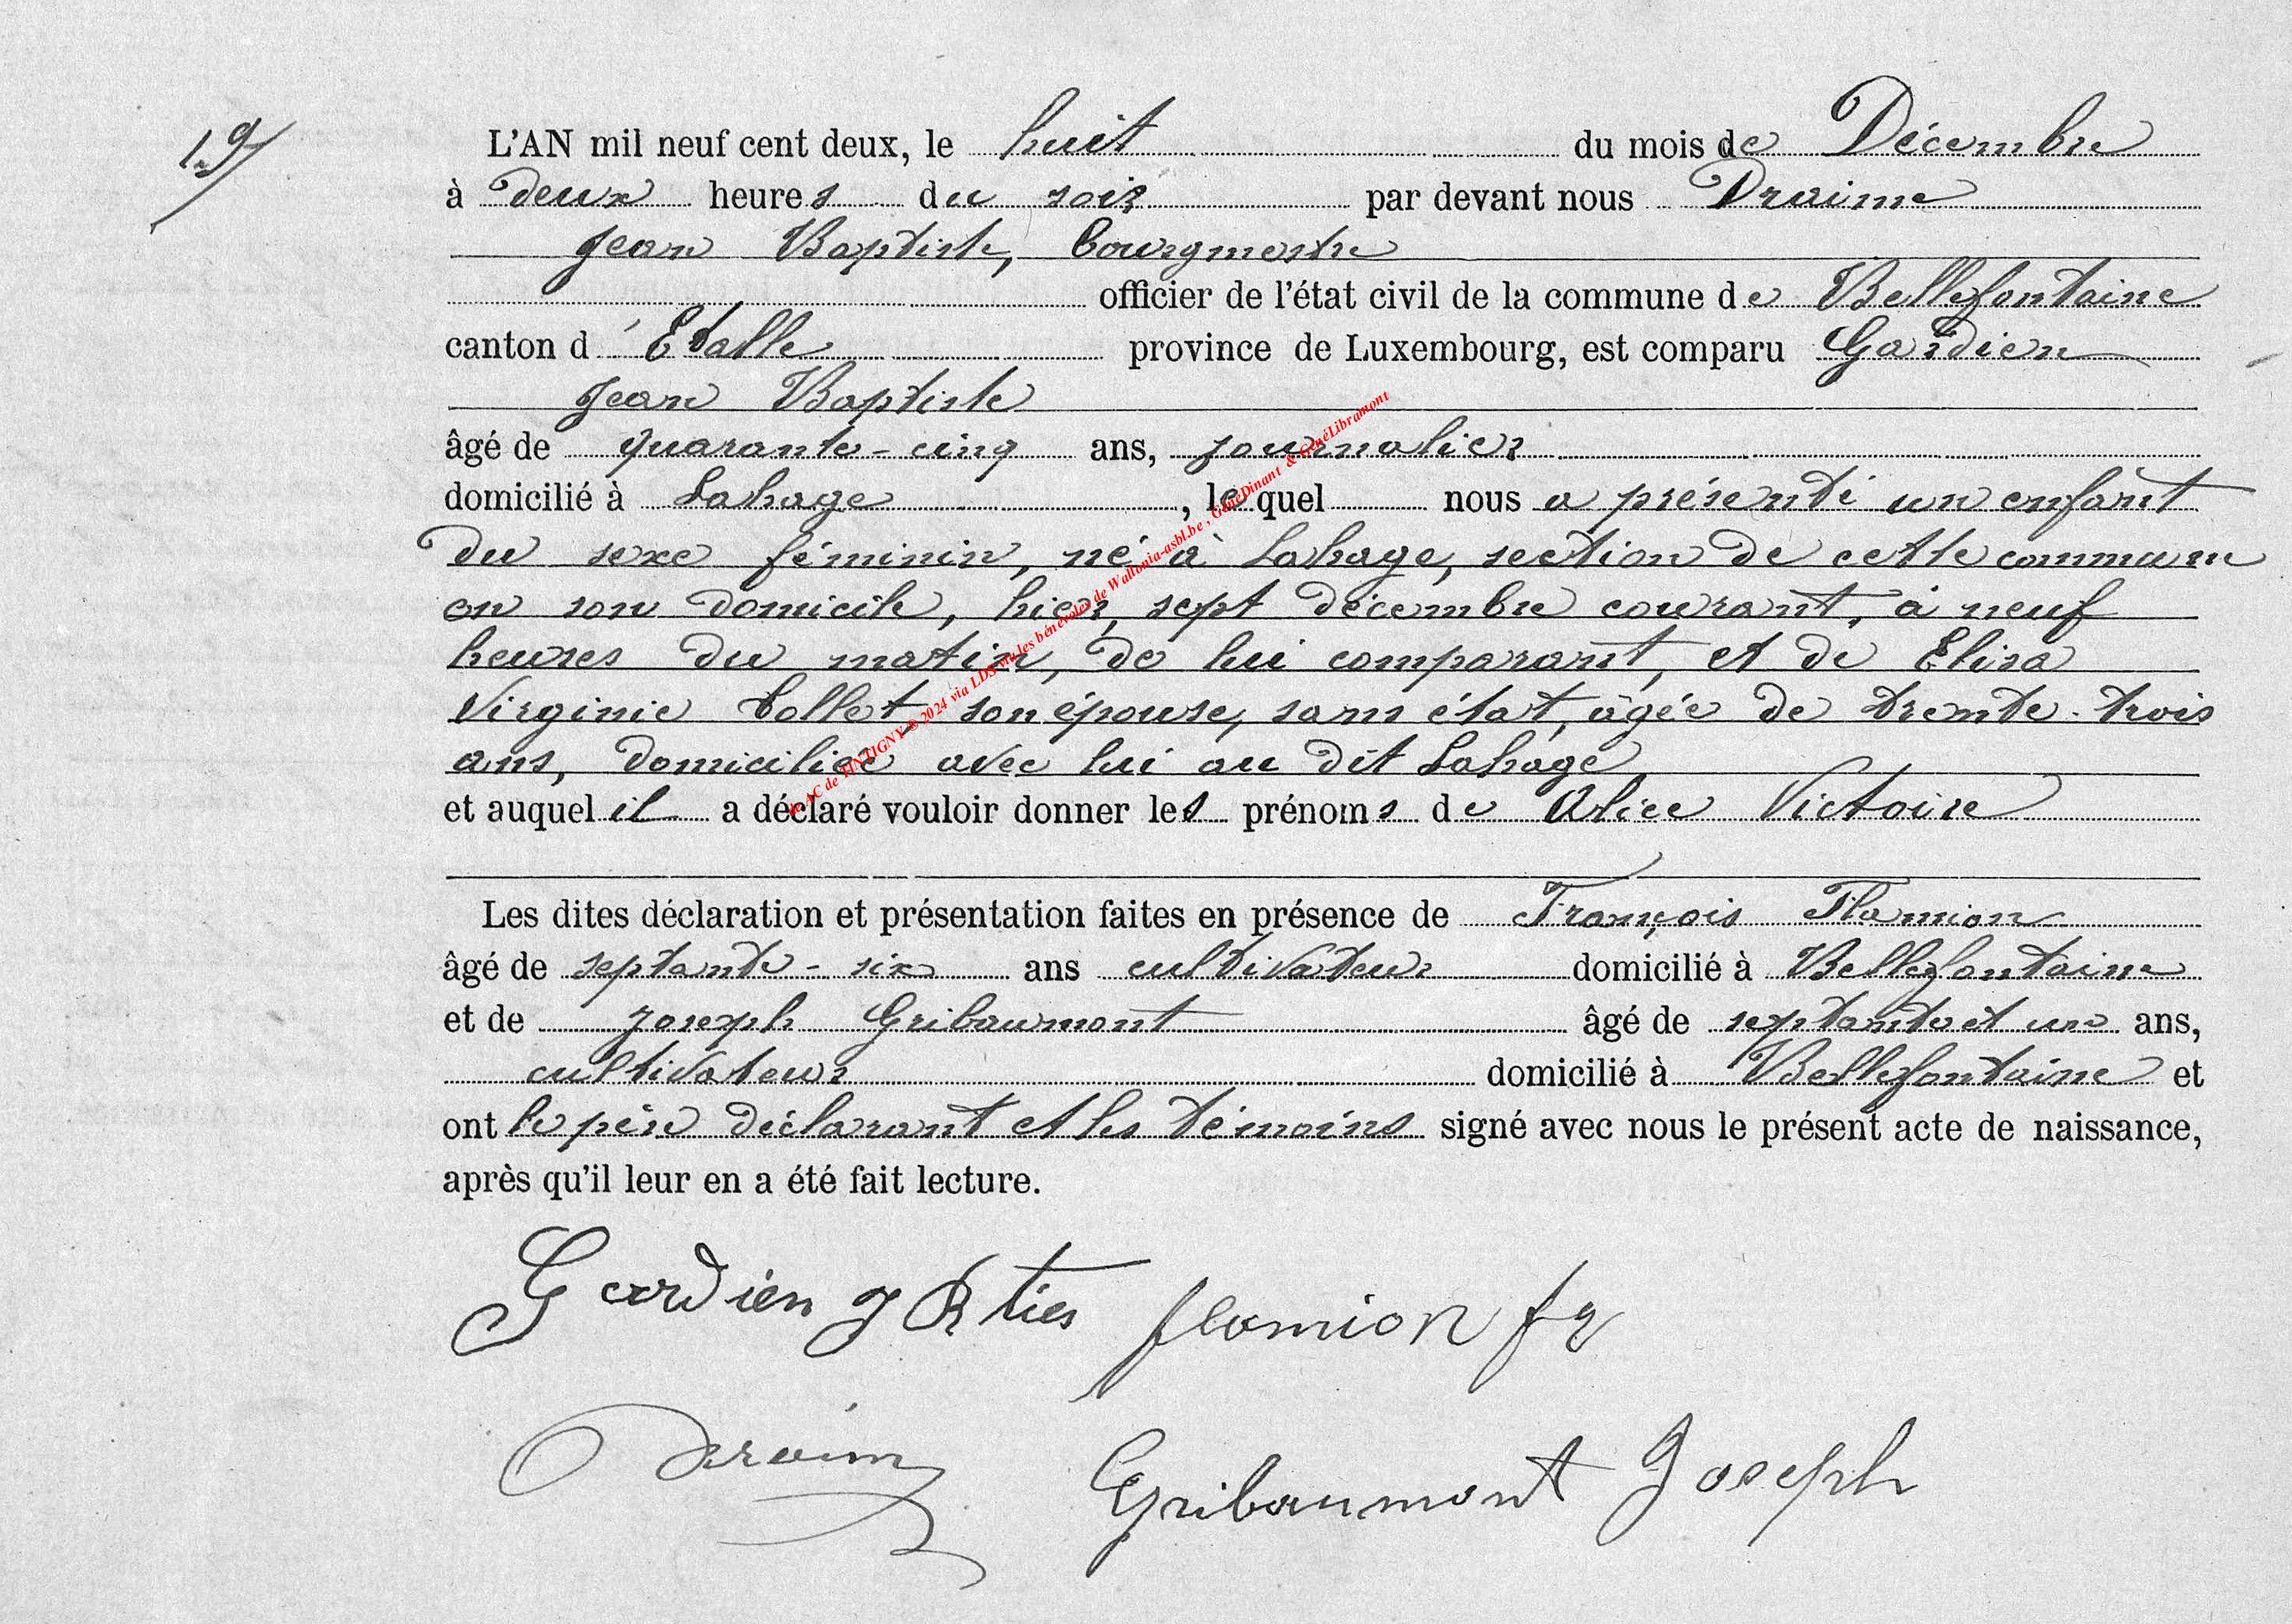 19/
L'AN mil neuf cent deux, le huit du mois de Décembre
à deux heures du soir par devant nous Draime
Jean Baptiste, bourgmestre
officier de l'état civil de la commune de Bellefontaine
canton d'Etalle province de Luxembourg, est comparu Gardien
Jean Baptiste
âgé de quarante-cinq ans, journalier
domicilié à Lahage, lequel nous a présenté un enfant
du sexe féminin, né à Lahage, section de cette commune
en son domicile, hier, sept décembre courant, à neuf
heures du matin, de lui comparant, et de Elisa
Virginie Collet son épouse, sans état, âgée de trente-trois
ans, domiciliée avec lui au dit Lahage
et auquel il a déclaré vouloir donner les prénoms de Alice Victoire
Les dites déclaration et présentation faites en présence de François Flamion
âgé de septante-six ans cultivateur domicilié à Bellefontaine
et de Joseph Gribaumont âgé de septante et un ans,
cultivateur domicilié à Bellefontaine et
ont le père déclarant et les témoins signé avec nous le présent acte de naissance,
après qu'il leur en a été fait lecture.
Gardien J B flamion fr
Draime
Gribaumont Joseph
AC de TINTIGNY © 2024 via LDS via les bénévoles de Wallonia-asbl.be, GénéDinant & GénéLibramont